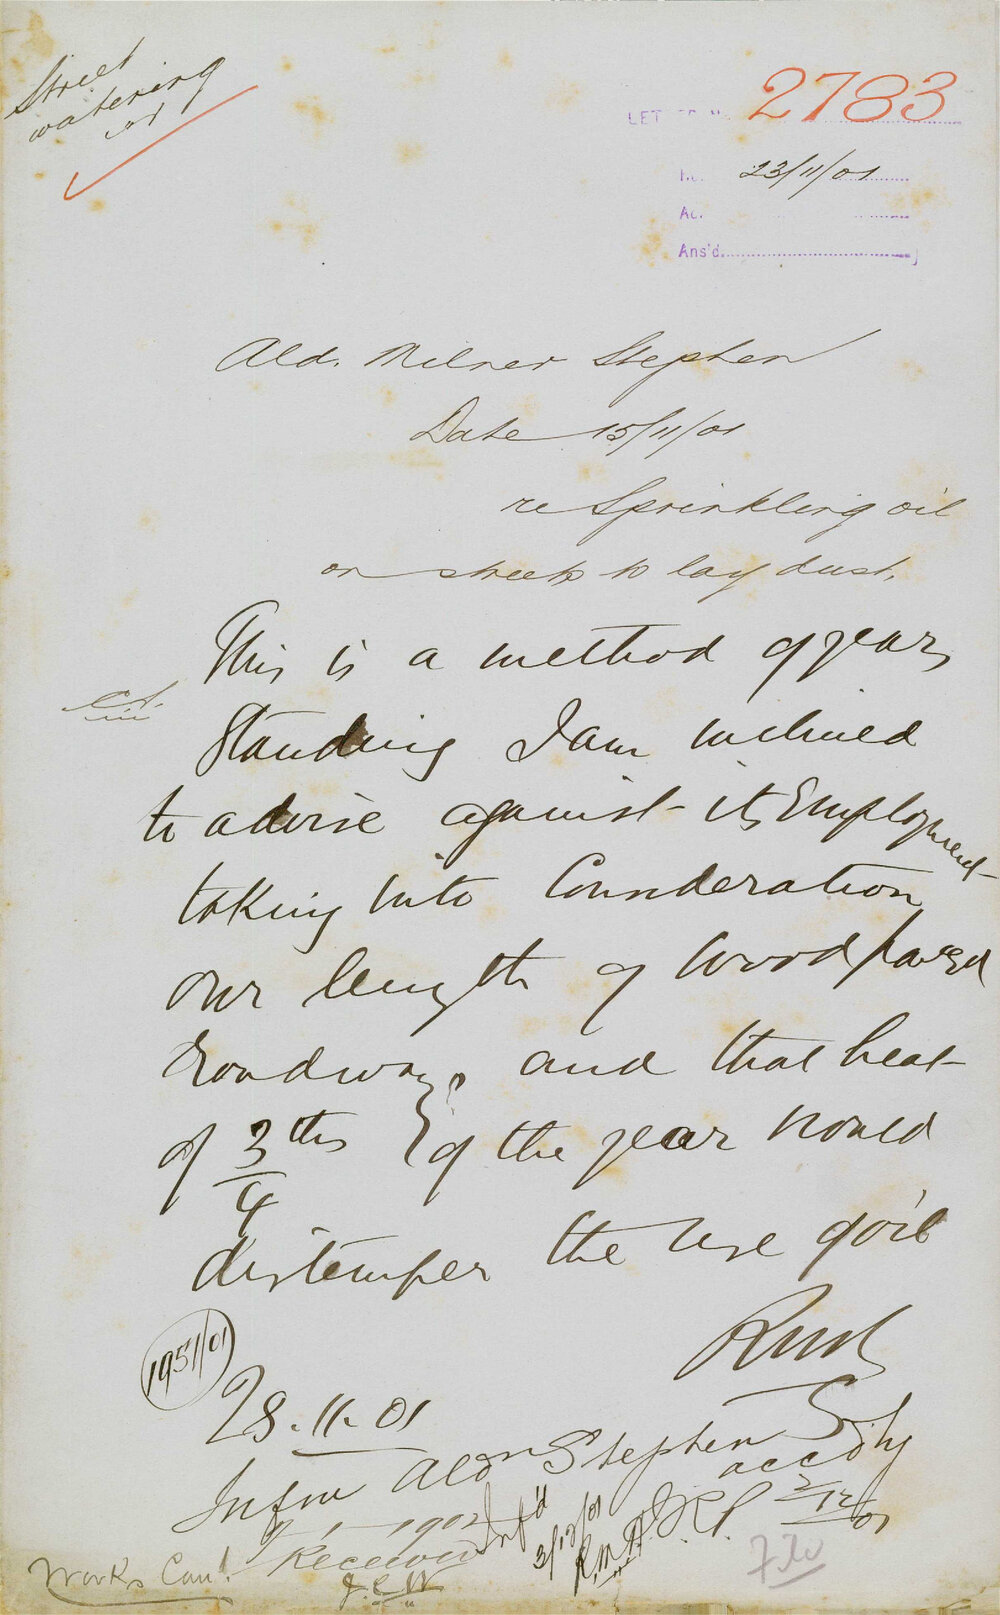 Street
watering
2783
23/11/01
Ans'd
Ald. Milner Stephen
Date 15/11/01
re Sprinkling oil
on streets to lay dust.
This is a method of years
Standing I am inclined
to advise against its Employment
taking into Consideration
our length of Wood paved
roadways and that heat
of 3/4 ths of the year would
distemper the use of oil
1951/01
28.11.01
Infm Aldn Stephen accdly
2/12/01
Inf'd
3/12/01
R.M.
1902
Received
J.C.W
Works Com!